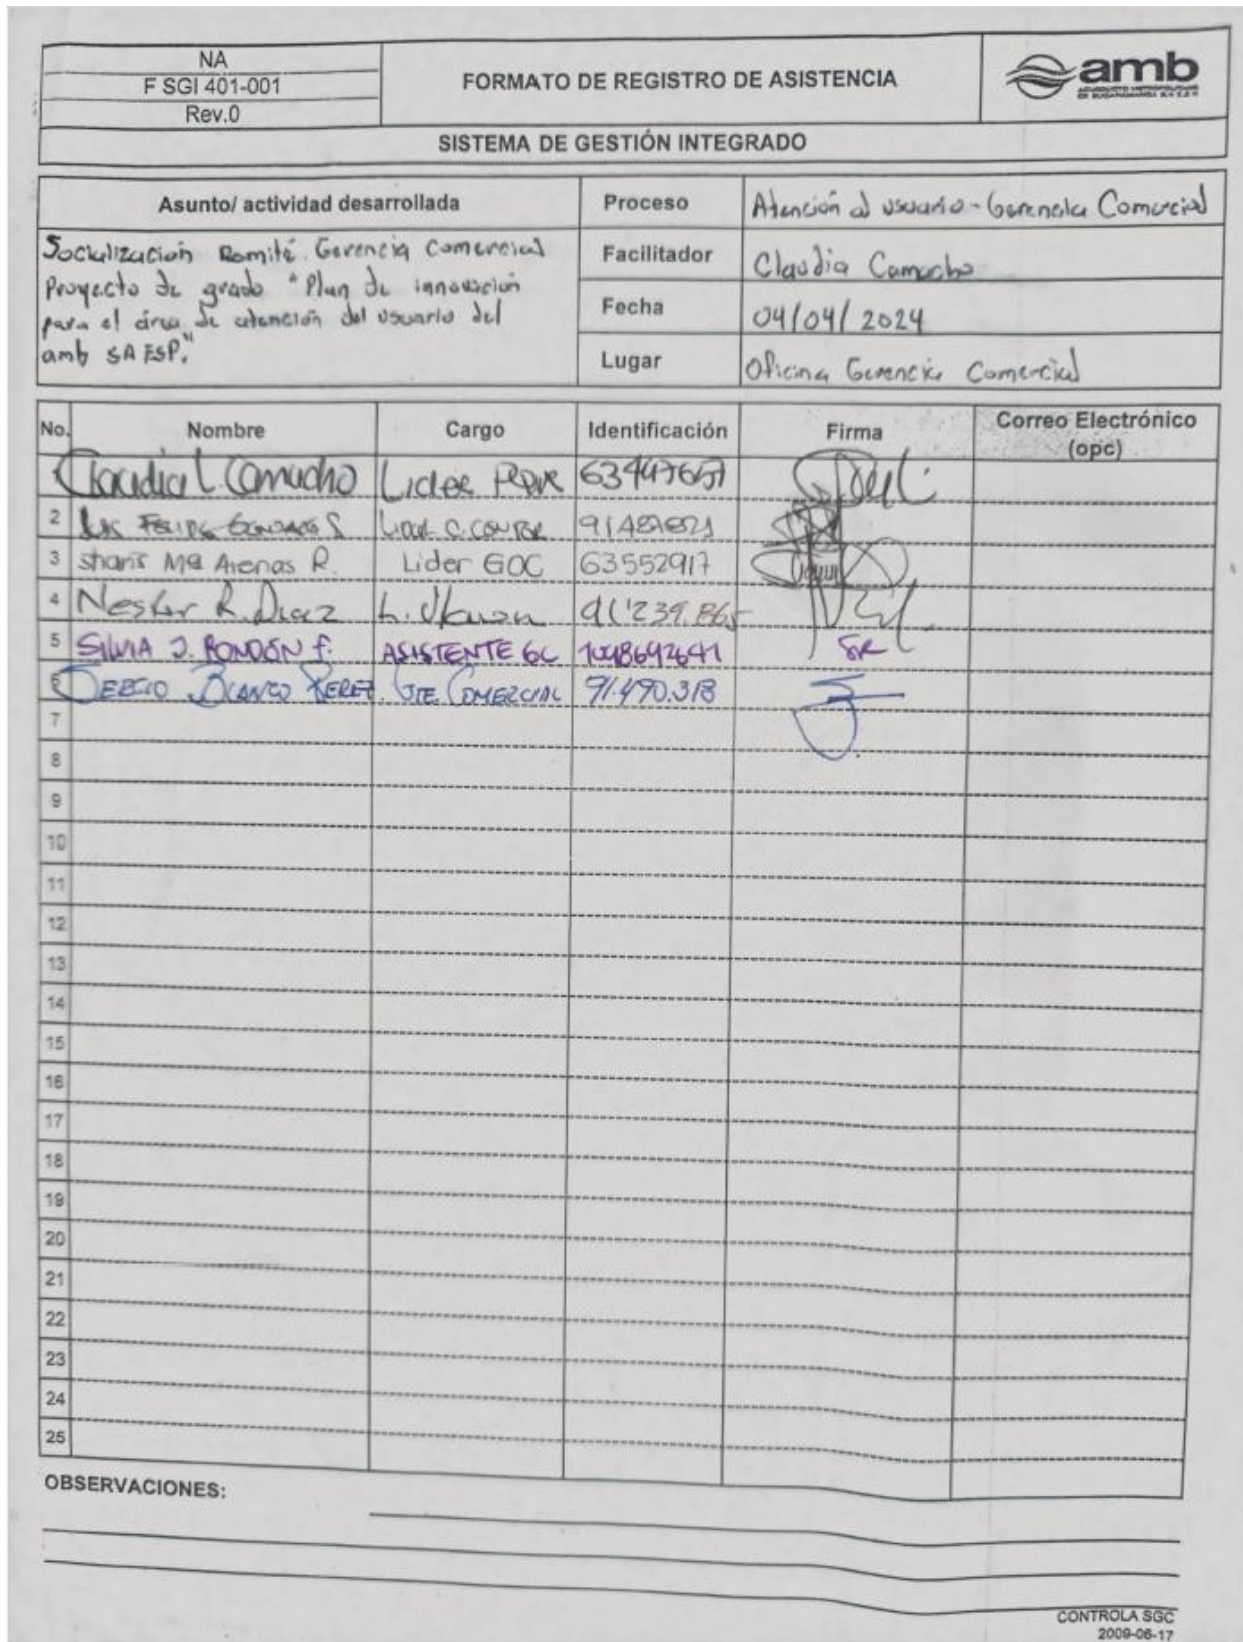 NA
F SGI 401-001
Rev.0
FORMATO DE REGISTRO DE ASISTENCIA
amb
ACUEDUCTO METROPOLITANO
DE BUCARAMANGA S.A E.S.P.
SISTEMA DE GESTIÓN INTEGRADO
Asunto/ actividad desarrollada
Socialización Comité Gerencia Comercial
Proyecto de grado "Plan de innovación
para el área de atención del usuario del
amb SA ESP."
Proceso Atención al usuario - Gerencia Comercial
Facilitador Claudia Camacho
Fecha 04/04/2024
Lugar Oficina Gerencia Comercial
No. Nombre Cargo Identificación Firma Correo Electrónico
(opc)
Claudia L Camacho Lider PQR
2 Luis Felipe
3 Sharis Ma Arenas R. Lider GOC 63552917
4 Nestor R. Diaz
5 SILVIA J. RONDÓN F. ASISTENTE GC SR
6 SERGIO BLANCO PEREZ GTE. COMERCIAL 91.490.318
7
8
9
10
11
12
13
14
15
16
17
18
19
20
21
22
23
24
25
OBSERVACIONES:
CONTROLA SGC
2009-06-17